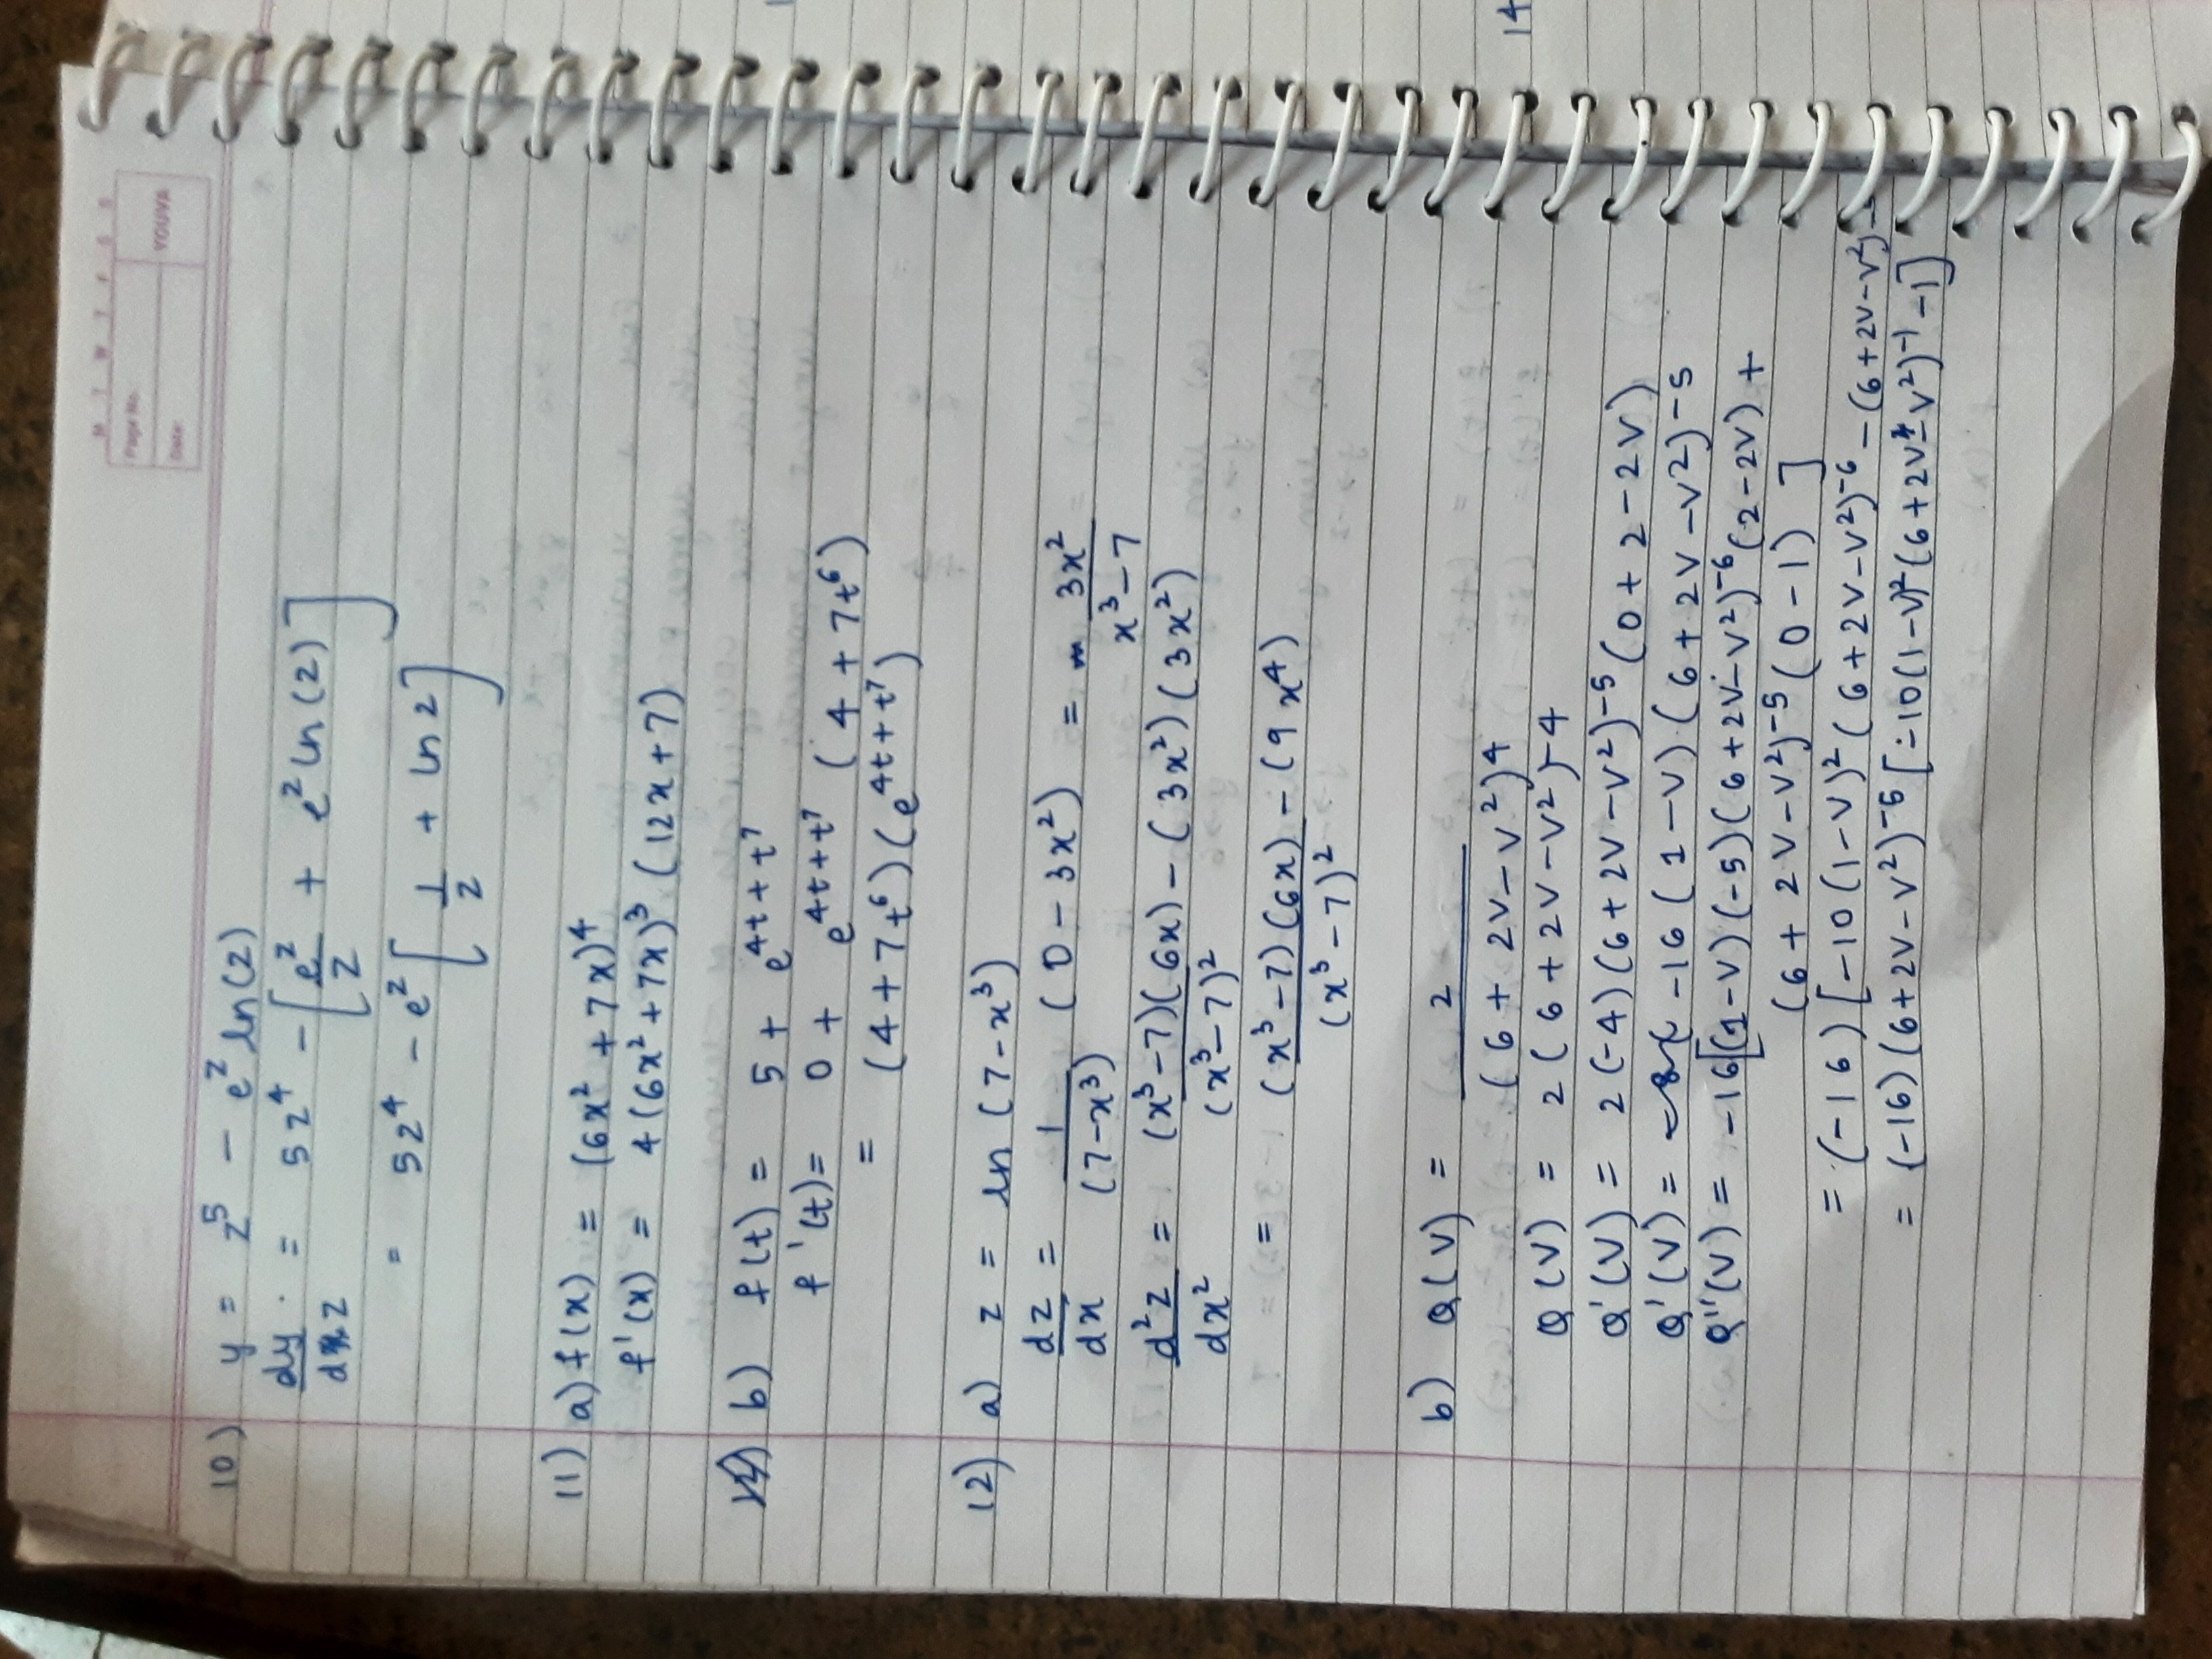 M T W T F S S
Page No.:
Date:
YOUVA
10) y = z⁵ - eᶻ ln(z)
dy/dz = 5z⁴ - [eᶻ/z + eᶻ ln(z)]
= 5z⁴ - eᶻ [1/z + ln z]
11) a) f(x) = (6x² + 7x)⁴
f'(x) = 4(6x² + 7x)³ (12x + 7)
b) f(t) = 5 + e^(4t + t⁷)
f'(t) = 0 + e^(4t + t⁷) (4 + 7t⁶)
= (4 + 7t⁶)(e^(4t + t⁷))
12) a) z = ln(7 - x³)
dz/dx = 1/(7 - x³) (0 - 3x²) = 3x²/x³ - 7
d²z/dx² = (x³ - 7)(6x) - (3x²)(3x²)/(x³ - 7)²
= (x³ - 7)(6x) - (9x⁴)/(x³ - 7)²
b) Q(v) = 2/(6 + 2v - v²)⁴
Q(v) = 2(6 + 2v - v²)⁻⁴
Q'(v) = 2(-4)(6 + 2v - v²)⁻⁵(0 + 2 - 2v)
Q'(v) = -16(1 - v)(6 + 2v - v²)⁻⁵
Q''(v) = -16[(1 - v)(-5)(6 + 2v - v²)⁻⁶(2 - 2v) +
(6 + 2v - v²)⁻⁵(0 - 1)]
= (-16)[-10(1 - v)²(6 + 2v - v²)⁻⁶ - (6 + 2v - v²)-
= (-16)(6 + 2v - v²)⁻⁵[-10(1 - v)²(6 + 2v - v²)⁻¹ - 1]
14